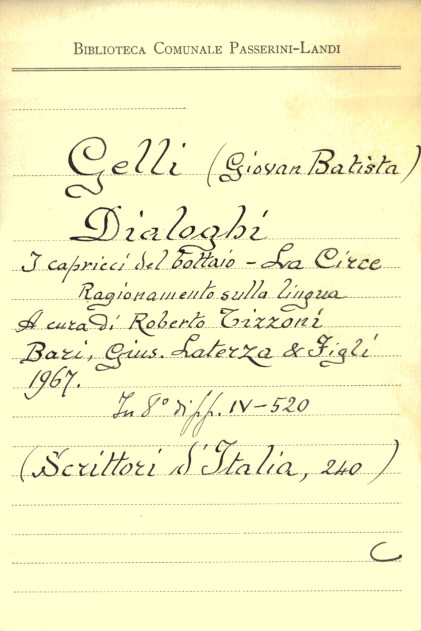 BIBLIOTECA COMUNALE PASSERINI-LANDI
Gelli (Giovan Batista)
Dialoghi
I capricci del bottaio - La Circe
Ragionamento sulla lingua
A cura di Roberto Tizzoni
Bari, Gius. Laterza & Figli
1967.
In 8° di pp. IV-520
(Scrittori d'Italia, 240)
C